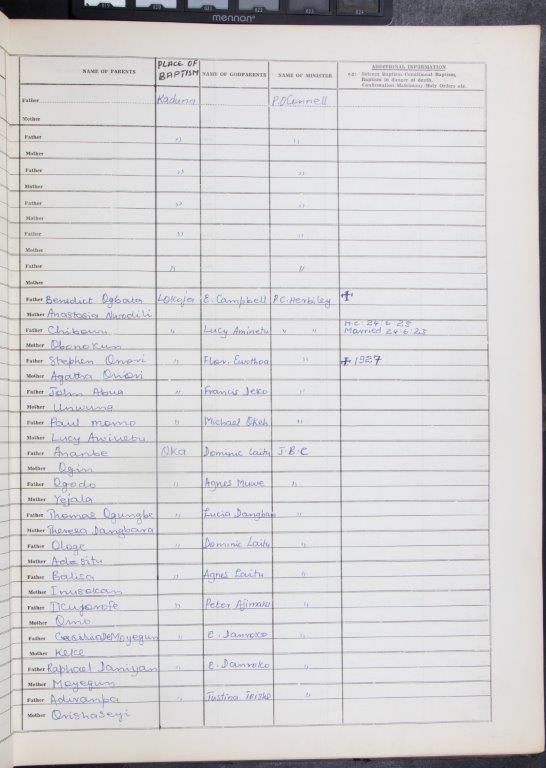 mennon
NAME OF PARENTS PLACE OF BAPTISM NAME OF GODPARENTS NAME OF MINISTER ADDITIONAL INFORMATION
e.g: Solemn Baptism/Conditional Baptism,
Baptism in danger of death,
Confirmation/Matrimony/Holy Orders etc.
Father Kaduna P.O'Connell
Mother
Father " "
Mother
Father " "
Mother
Father " "
Mother
Father " "
Mother
Father " "
Mother
Father Benedict Ogbata Lokoja E. Campbell P.C. Herbiley ✝
Mother Anastasia
Father Chibowu " Lucy Aminetu " " H.C. 24.6.23
Married 24.6.23
Mother Obonokum
Father Stephen Onori " Flor. " ✝ 1927
Mother Agatha Onori
Father John Abua " Francis Jeko "
Mother Unwuna
Father Paul momo " Michael Okeh "
Mother Lucy Aminetu
Father Ananbe Oka Dominic Laitu J.B.C
Mother Ogin
Father Ogodo " Agnes Muwe "
Mother Yejala
Father Thomas Ogungbe " Lucia Dangbara "
Mother Theresa Dangbara
Father Ologe " Dominic Laitu "
Mother Adesitu
Father Balisa " Agnes Laitu "
Mother Inusokan
Father " Peter Ajimoku "
Mother Omo
Father Moyegun " E. Danroko "
Mother Keke
Father Raphael Daniyan " E. Danroko "
Mother Moyegun
Father Aduranpa " Justina "
Mother Orishaseyi